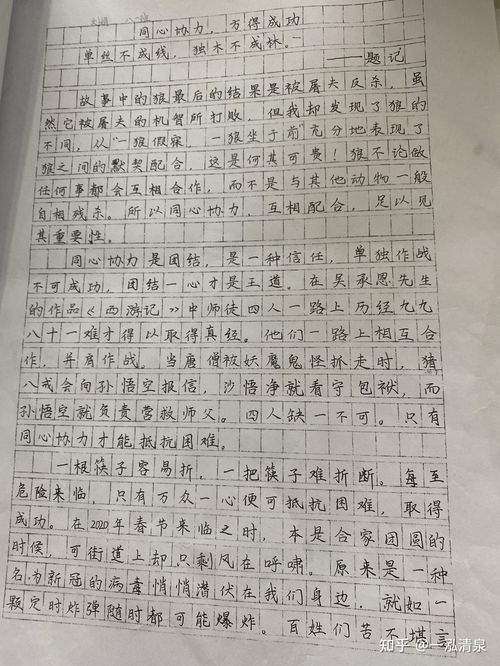 同心协力，方得成功
单丝不成线，独木不成林。
——题记
故事中的狼最后的结果是被屠夫反杀，虽
然它被屠夫的机智所打败，但我却发现了狼的
不同，从“一狼假寐，一狼坐于前”充分地表现了
狼之间的默契配合，这是何其可贵！狼不论做
任何事都会互相合作，而不是与其他动物一般
自相残杀。所以同心协力，互相配合，足以见
其重要性。
同心协力是团结，是一种信任，单独作战
不可成功，团结一心才是王道。在吴承恩先生
的作品《西游记》中师徒四人一路上历经九九
八十一难才得以取得真经。他们一路上相互合
作，并肩作战。当唐僧被妖魔鬼怪抓走时，猪
八戒会向孙悟空报信，沙悟净就看守包袱，而
孙悟空就负责营救师父。四人缺一不可。只有
同心协力才能抵抗困难。
一根筷子容易折，一把筷子难折断。每至
危险来临，只有万众一心便可抵抗困难，取得
成功。在2020年春节来临之时，本是合家团圆的
时候，可街道上却只剩风在呼啸。原来是一种
名为新冠的病毒悄悄潜伏在我们身边，就如一
颗定时炸弹随时都可能爆炸。百姓们苦不堪言
知乎 @一泓清泉